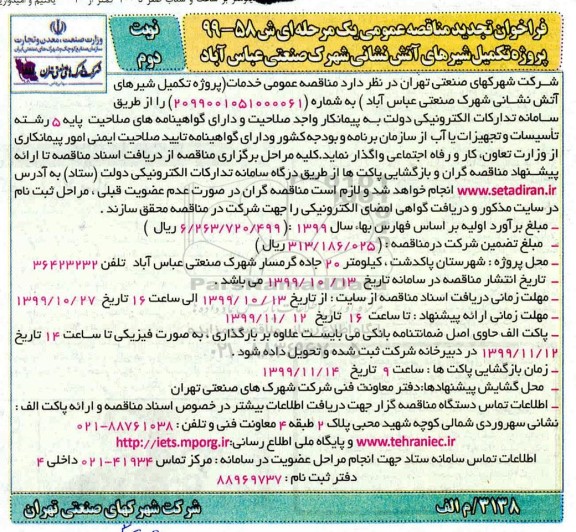 وزارت صنعت، معدن و تجارت
نوبت دوم
فراخوان تجدید مناقصه عمومی یک مرحله ای ش ۵۸-۹۹
پروژه تکمیل شیرهای آتش نشانی شهرک صنعتی عباس آباد
شرکت شهرکهای صنعتی تهران در نظر دارد مناقصه عمومی خدمات (پروژه تکمیل شیرهای
آتش نشانی شهرک صنعتی عباس آباد ) به شماره (۲۰۹۹۰۰۱۰۵۱۰۰۰۰۶۱) را از طریق
سامانه تدارکات الکترونیکی دولت به پیمانکار واجد صلاحیت و دارای گواهینامه های صلاحیت پایه ۵ رشته
تأسیسات و تجهیزات یا آب از سازمان برنامه و بودجه کشور و دارای گواهینامه تایید صلاحیت ایمنی امور پیمانکاری
از وزارت تعاون، کار و رفاه اجتماعی واگذار نماید. کلیه مراحل برگزاری مناقصه از دریافت اسناد مناقصه تا ارائه
پیشنهاد مناقصه گران و بازگشایی پاکت ها از طریق درگاه سامانه تدارکات الکترونیکی دولت (ستاد) به آدرس
www.setadiran.ir انجام خواهد شد و لازم است مناقصه گران در صورت عدم عضویت قبلی ، مراحل ثبت نام
در سایت مذکور و دریافت گواهی امضای الکترونیکی را جهت شرکت در مناقصه محقق سازند .
ـ مبلغ برآورد اولیه بر اساس فهارس بهاء سال ۱۳۹۹ :( ۶/۲۶۳/۷۲۰/۴۹۹ ریال )
ـ مبلغ تضمین شرکت در مناقصه : ( ۳۱۳/۱۸۶/۰۲۵ ریال )
ـ محل پروژه : شهرستان پاکدشت ، کیلومتر ۲۰ جاده گرمسار شهرک صنعتی عباس آباد تلفن ۳۶۴۲۳۲۳۲
ـ تاریخ انتشار مناقصه در سامانه تاریخ ۱۳۹۹/۱۰/۱۳ می باشد .
ـ مهلت زمانی دریافت اسناد مناقصه از سایت : از تاریخ ۱۳۹۹/۱۰/۱۳ الی ساعت ۱۶ تاریخ ۱۳۹۹/۱۰/۲۷
ـ مهلت زمانی ارائه پیشنهاد : تا ساعت ۱۶ تاریخ ۱۳۹۹/۱۱/۱۲
ـ پاکت الف حاوی اصل ضمانتنامه بانکی می بایست علاوه بر بارگذاری ، به صورت فیزیکی تا ساعت ۱۴ تاریخ
۱۳۹۹/۱۱/۱۲ در دبیرخانه شرکت ثبت شده و تحویل داده شود .
ـ زمان بازگشایی پاکت ها : ساعت ۹ تاریخ ۱۳۹۹/۱۱/۱۴
ـ محل گشایش پیشنهادها: دفتر معاونت فنی شرکت شهرک های صنعتی تهران
ـ اطلاعات تماس دستگاه مناقصه گزار جهت دریافت اطلاعات بیشتر در خصوص اسناد مناقصه و ارائه پاکت الف :
نشانی سهروردی شمالی کوچه شهید محبی پلاک ۲ طبقه ۴ معاونت فنی و تلفن : ۸۸۷۶۱۰۳۸-۰۲۱
www.tehraniec.ir و پایگاه ملی اطلاع رسانی: http://iets.mporg.ir
اطلاعات تماس سامانه ستاد جهت انجام مراحل عضویت در سامانه : مرکز تماس ۴۱۹۳۴-۰۲۱ داخلی ۴
دفتر ثبت نام : ۸۸۹۶۹۷۳۷
۳۱۳۸/م الف
شرکت شهرکهای صنعتی تهران